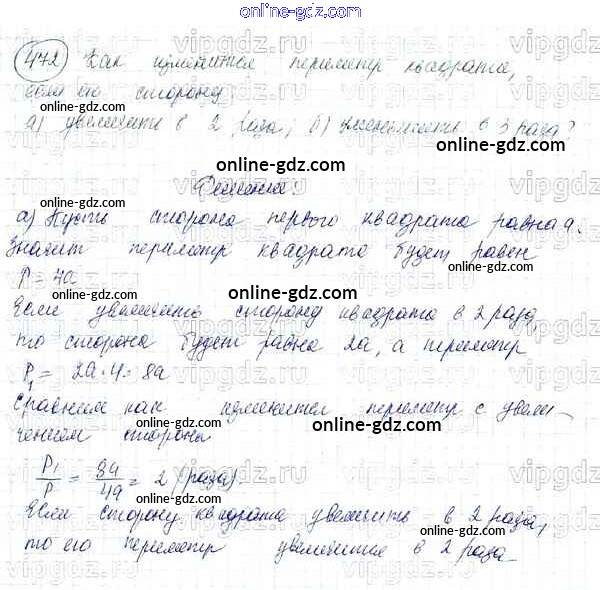 online-gdz.com
472 Как изменится периметр квадрата,
если его сторону:
online-gdz.com
а) увеличить в 2 раза; б) уменьшить в 3 раза?
online-gdz.com
Решение:
а) Пусть сторона первого квадрата равна a.
online-gdz.com
Значит периметр квадрата будет равен
P = 4a
online-gdz.com
Если увеличить сторону квадрата в 2 раза,
то сторона будет равна 2a, а периметр
P₁ = 2a·4 = 8a
online-gdz.com
Сравним как изменится периметр с увели-
чением стороны
online-gdz.com
P₁/P = 8a/4a = 2 (раза).
online-gdz.com
Если сторону квадрата увеличить в 2 раза,
то его периметр увеличится в 2 раза
online-gdz.com